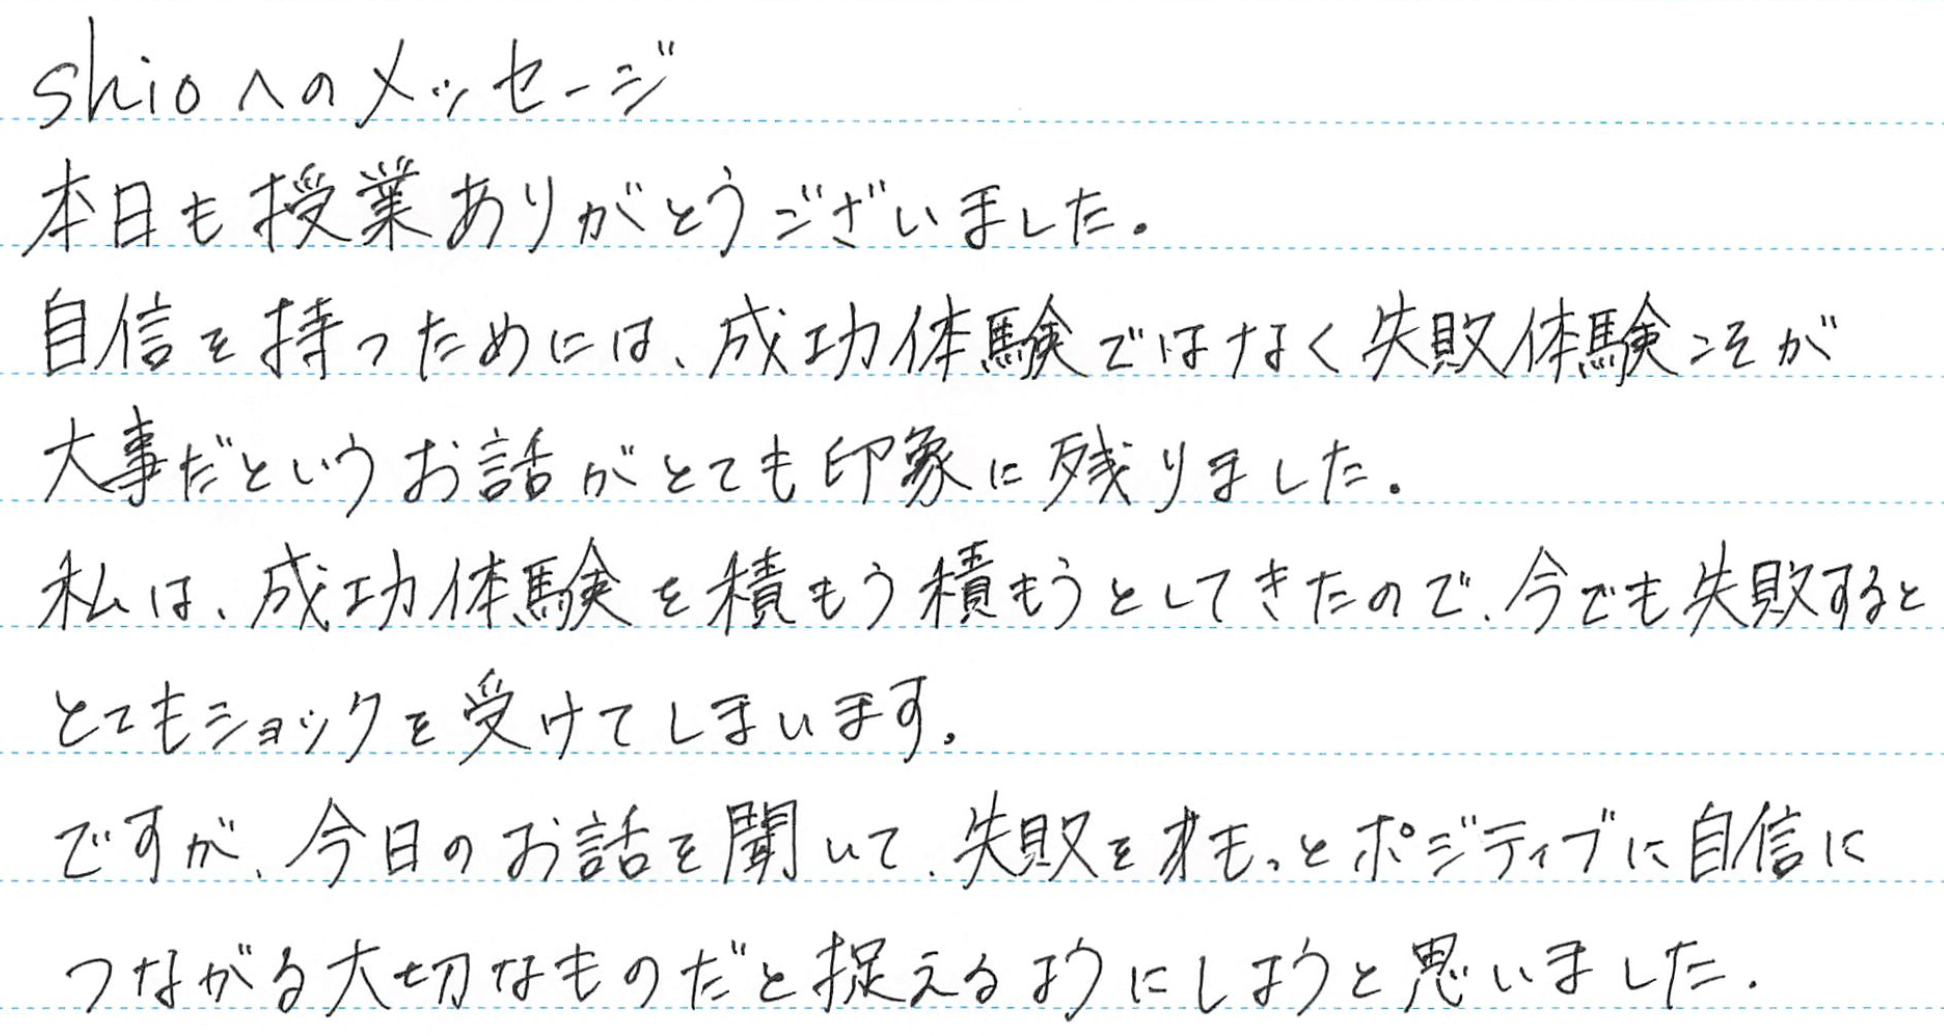 shioへのメッセージ
本日も授業ありがとうございました。
自信を持つためには、成功体験ではなく失敗体験こそが
大事だというお話がとても印象に残りました。
私は、成功体験を積もう積もうとしてきたので、今でも失敗すると
とてもショックを受けてしまいます。
ですが、今日のお話を聞いて、失敗をもっとポジティブに自信に
つながる大切なものだと捉えるようにしようと思いました。